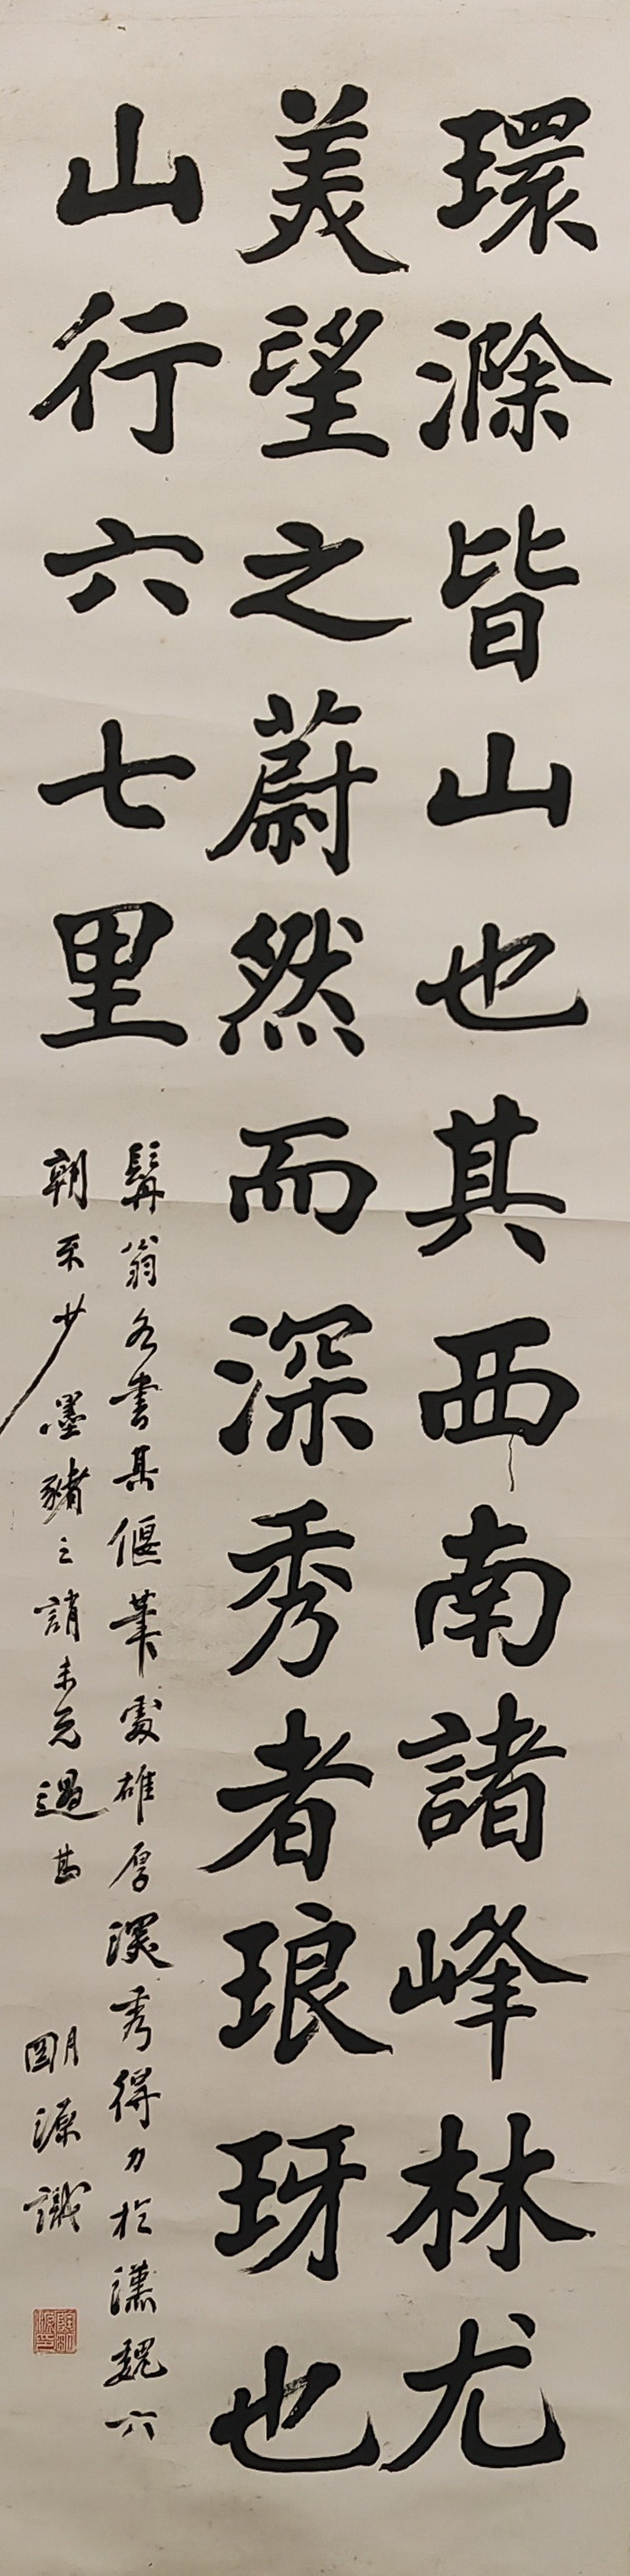 環滁皆山也其西南諸峰林尤
美望之蔚然而深秀者琅玡也
山行六七里
髯翁名書其偃筆處雄厚深秀得力於漢魏六
朝不少墨豬之誚未免過甚
明源識